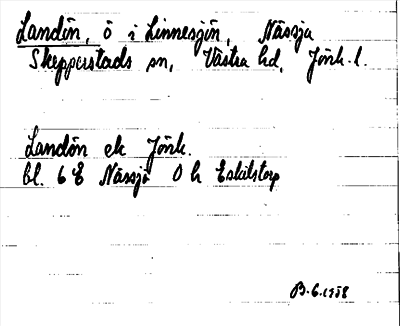 Landön, ö i Linnesjön, Nässja
Skepperstads sn, Västra hd, Jönk. l.
Landön ek Jönk.
bl. 6 E Nässjö 0 h Eskilstorp
B.G. 1958